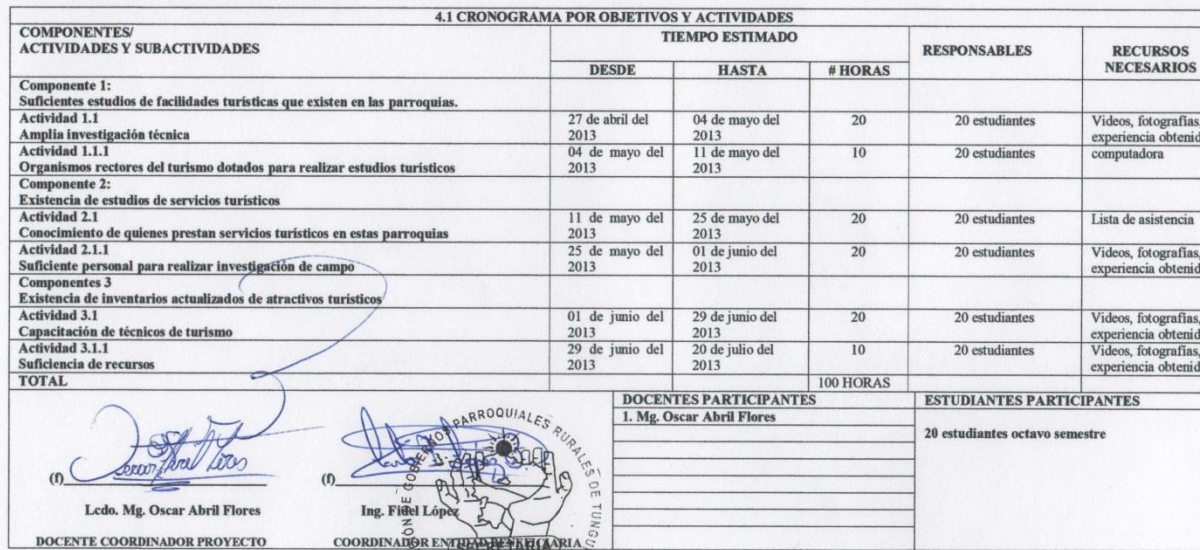 4.1 CRONOGRAMA POR OBJETIVOS Y ACTIVIDADES
COMPONENTES/
ACTIVIDADES Y SUBACTIVIDADES
TIEMPO ESTIMADO
RESPONSABLES
RECURSOS
NECESARIOS
DESDE HASTA # HORAS
Componente 1:
Suficientes estudios de facilidades turísticas que existen en las parroquias.
Actividad 1.1
Amplia investigación técnica
27 de abril del
2013
04 de mayo del
2013
20
20 estudiantes
Videos, fotografías,
experiencia obtenid
Actividad 1.1.1
Organismos rectores del turismo dotados para realizar estudios turísticos
04 de mayo del
2013
11 de mayo del
2013
10
20 estudiantes
computadora
Componente 2:
Existencia de estudios de servicios turísticos
Actividad 2.1
Conocimiento de quienes prestan servicios turísticos en estas parroquias
11 de mayo del
2013
25 de mayo del
2013
20
20 estudiantes
Lista de asistencia
Actividad 2.1.1
Suficiente personal para realizar investigación de campo
25 de mayo del
2013
01 de junio del
2013
20
20 estudiantes
Videos, fotografías,
experiencia obtenid
Componentes 3
Existencia de inventarios actualizados de atractivos turísticos
Actividad 3.1
Capacitación de técnicos de turismo
01 de junio del
2013
29 de junio del
2013
20
20 estudiantes
Videos, fotografías,
experiencia obtenid
Actividad 3.1.1
Suficiencia de recursos
29 de junio del
2013
20 de julio del
2013
10
20 estudiantes
Videos, fotografías,
experiencia obtenid
TOTAL
100 HORAS
DOCENTES PARTICIPANTES
1. Mg. Oscar Abril Flores
ESTUDIANTES PARTICIPANTES
20 estudiantes octavo semestre
(f)
Lcdo. Mg. Oscar Abril Flores
DOCENTE COORDINADOR PROYECTO
(f)
Ing. Fidel López
COORDINADOR ENTIDAD BENEFICIARIA
GOBIERNOS PARROQUIALES RURALES DE TUNGU
SECRETARIA